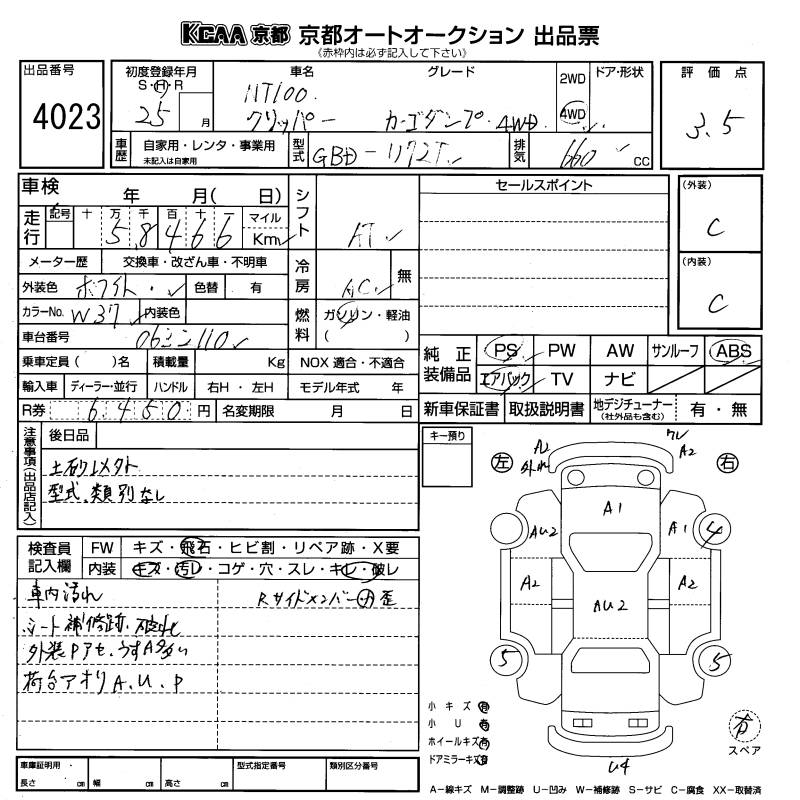 KCAA 京都 京都オートオークション 出品票
(赤枠内は必ず記入して下さい)
出品番号
4023
初度登録年月
S・H・R
25 月
車名
NT100
クリッパー
グレード
カーゴダンプ・4WD
2WD
4WD
ドア・形状
評価点
3.5
車歴
自家用・レンタ・事業用
未記入は自家用
型式
GBD-U72T
排気
660 CC
車検 年 月( 日)
走行
記号 十 万 千 百 十 一
5 8 4 6 6
マイル
Km
シフト
AT
メーター歴 交換車・改ざん車・不明車
外装色 ホワイト 色替 有
冷房
AC 無
カラーNo. W37 内装色
燃料
ガソリン・軽油
( )
車台番号
乗車定員( )名 積載量 Kg NOX 適合・不適合
輸入車 ディーラー・並行 ハンドル 右H・左H モデル年式 年
R券 6450 円 名変期限 月 日
セールスポイント
(外装)
C
(内装)
C
純正装備品
PS PW AW サンルーフ ABS
エアバック TV ナビ
新車保証書 取扱説明書 地デジチューナー
(社外品も含む)
有・無
注意事項(出品店記入)
後日品
型式、類別なし
キー預り
検査員記入欄
FW キズ・飛石・ヒビ割・リペア跡・X要
内装 キズ・汚レ・コゲ・穴・スレ・キレ・破レ
車内汚れ
RサイドメンバーⓂ歪
シート補修跡、破れ
荷台アオリA、U、P
左
右
A2
外れ
ワレ
A2
A1
AU2
A1
4
A2
A2
AU2
5
5
U4
小キズ 有
小U 有
ホイールキズ 有
ドアミラーキズ 有
有
スペア
車庫証明用・
長さ cm 幅 cm 高さ cm
型式指定番号
類別区分番号
A-線キズ M-調整跡 U-凹み W-補修跡 S-サビ C-腐食 XX-取替済